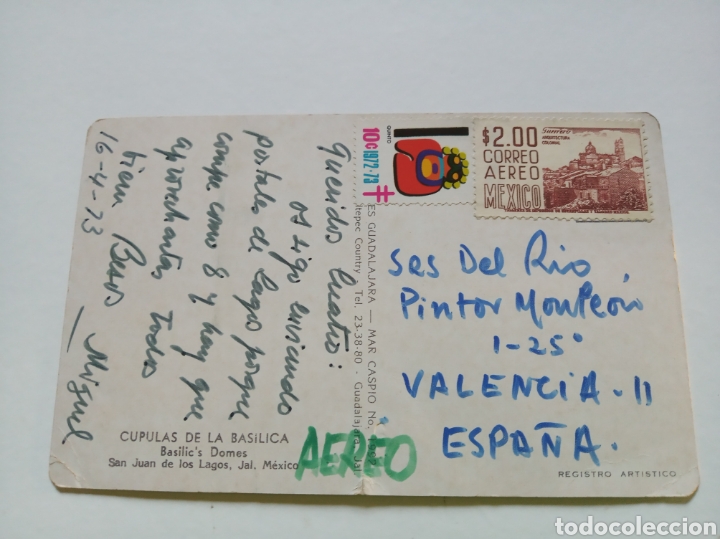 Queridos Cuatro:
os sigo enviando
postales de lagos porque
compre como 8 y hay que
aprovecharlas todas
Besos Miguel
16-4-73
CUPULAS DE LA BASILICA
Basilic's Domes
San Juan de los Lagos, Jal. México
ES GUADALAJARA — MAR CASPIO No.
ltepec Country - Tel. 23-38-80 - Guadalajara, Jal.
QUINTO
10c 1972-73
$2.00
Guerrero
ARQUITECTURA
COLONIAL
CORREO
AEREO
MEXICO
Sres Del Rio
Pintor Monleón
1-25ª
VALENCIA-11
ESPAÑA.
AEREO
REGISTRO ARTISTICO
todocoleccion